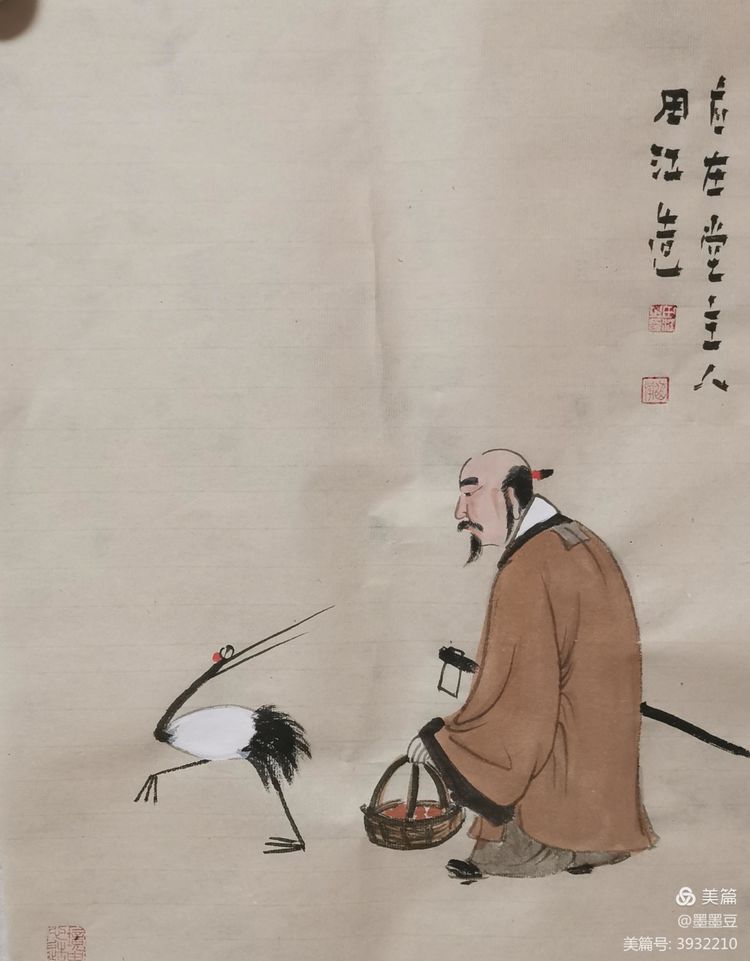 在堂主人
周江造
美篇
@墨墨豆
美篇号: 3932210